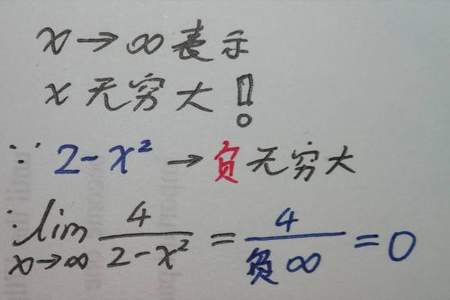 x→∞表示
x无穷大!
∵2-x²→负无穷大
∴lim x→∞ 4/(2-x²) = 4/负∞ = 0